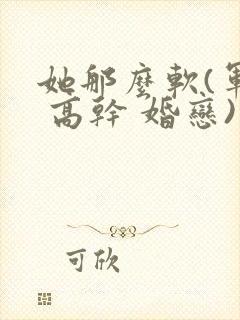 她那麼軟(軍
高幹 婚戀)
可欣